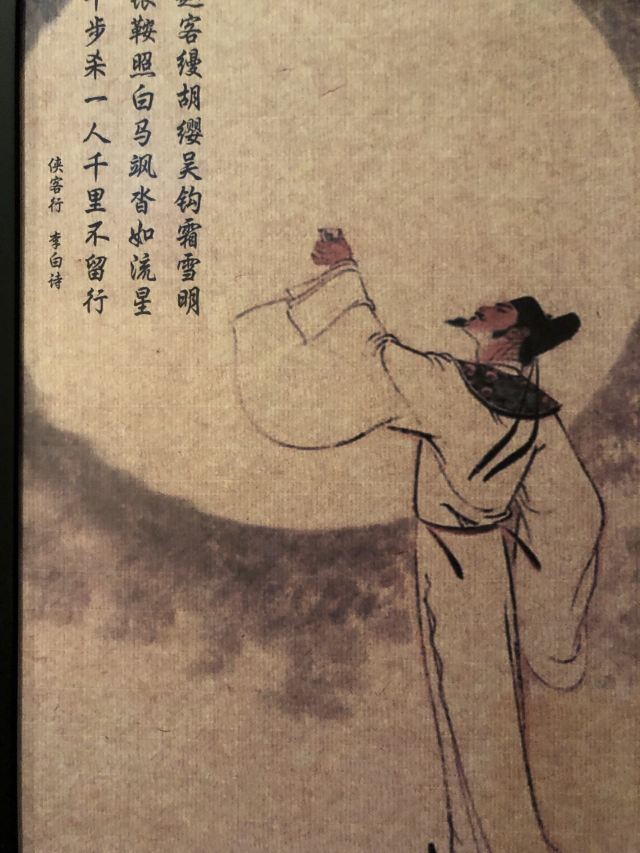 客缦胡缨吴钩霜雪明
银鞍照白马飒沓如流星
十步杀一人千里不留行
侠客行 李白诗